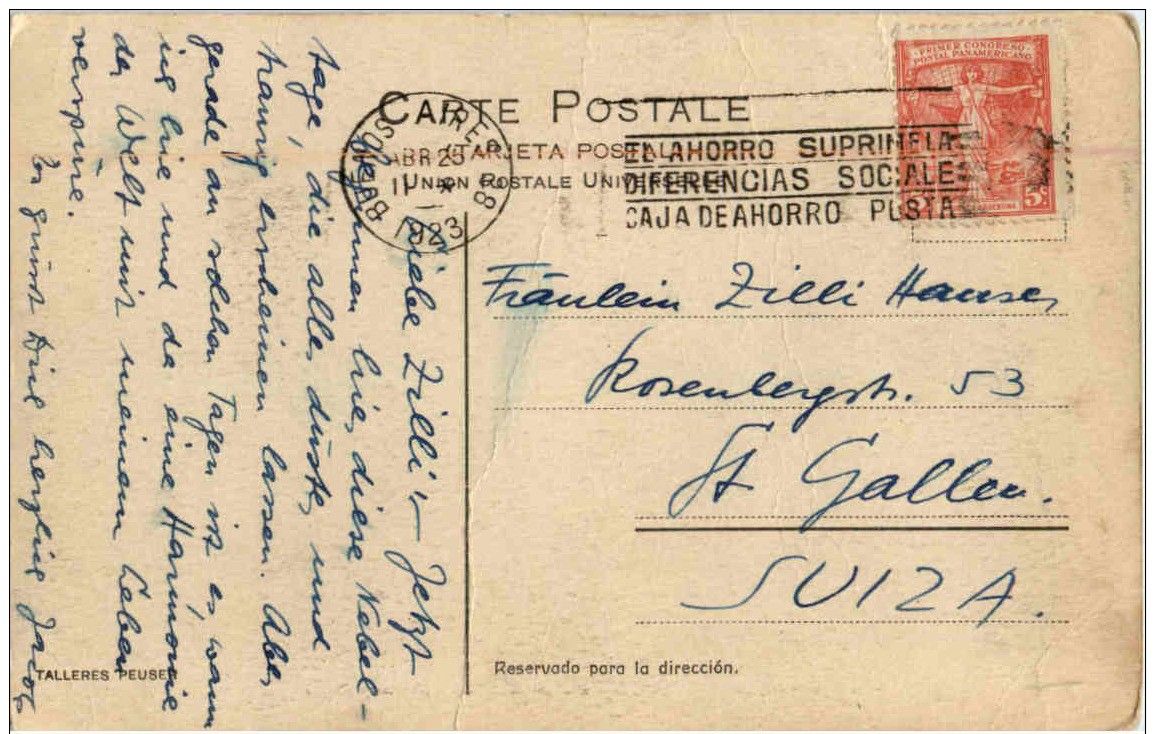 CARTE POSTALE
(TARJETA POSTAL)
UNION POSTALE UNIVERSELLE
PRIMER CONGRESO
POSTAL PANAMERICANO
5c
BUENOS AIRES
ABR 25
11
1923
8
EL AHORRO SUPRIME LAS
DIFERENCIAS SOCIALES
CAJA DE AHORRO POSTAL
Fräulein Zilli Hauser
Rosenbergstr. 53
St Gallen.
SUIZA.
Reservado para la dirección.
TALLERES PEUSER
Liebe Zilli, – Jetzt
beginnen hier diese Nebel-
tage, die alles düster und
traurig erscheinen lassen. Aber
gerade an solchen Tagen ist es, wann
ich hie und da eine Harmonie
der Welt mit meinem Leben
verspüre.
Es grüsst Dich herzlich Jacob